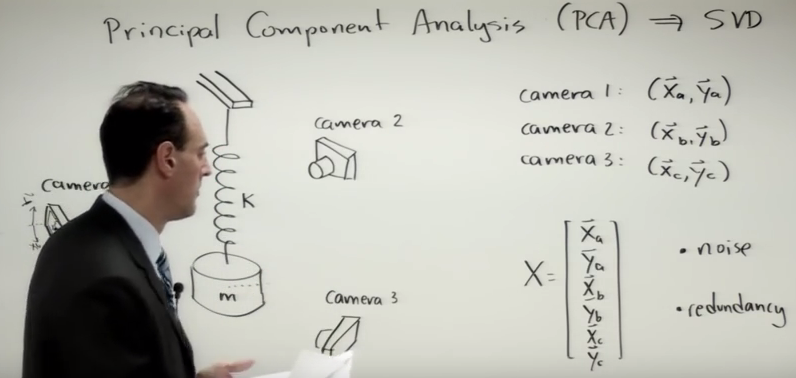 Principal Component Analysis (PCA) ⇒ SVD
camera 2
camera 1: (x⃗a, y⃗a)
camera 2: (x⃗b, y⃗b)
camera 3: (x⃗c, y⃗c)
camera
K
m
camera 3
X = [x⃗a
y⃗a
x⃗b
y⃗b
x⃗c
y⃗c]
• noise
• redundancy